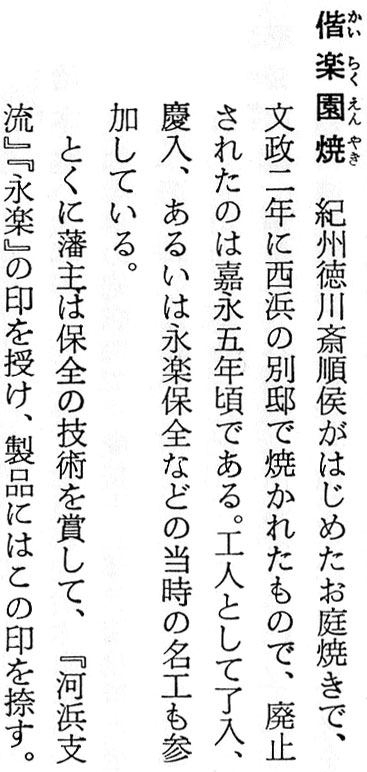 偕楽園焼　紀州徳川斎順侯がはじめたお庭焼きで、
文政二年に西浜の別邸で焼かれたもので、廃止
されたのは嘉永五年頃である。工人として了入、
慶入、あるいは永楽保全などの当時の名工も参
加している。
とくに藩主は保全の技術を賞して、『河浜支
流』『永楽』の印を授け、製品にはこの印を捺す。
かいらくえんやき